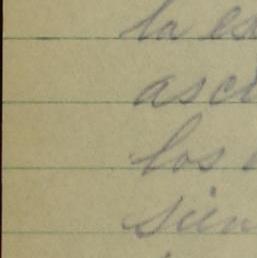 la es
asci
los
sien